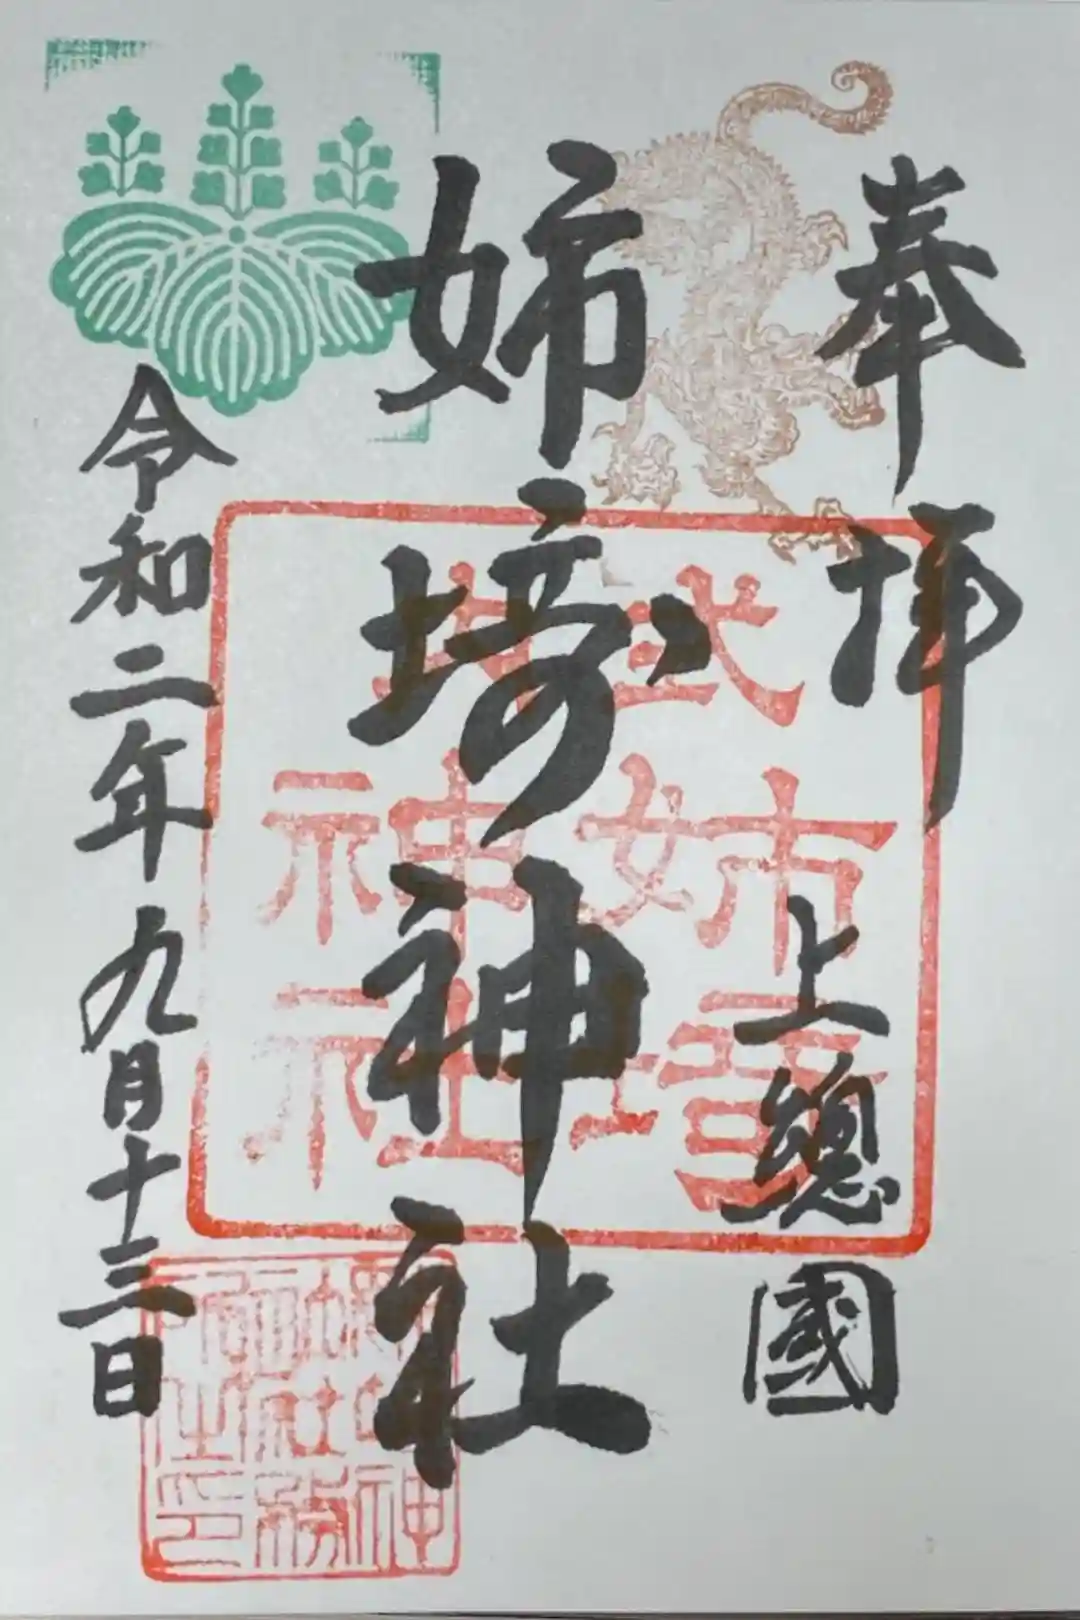 奉拝
上總國
姉埼神社
令和二年九月十三日
式内
姉埼
神社